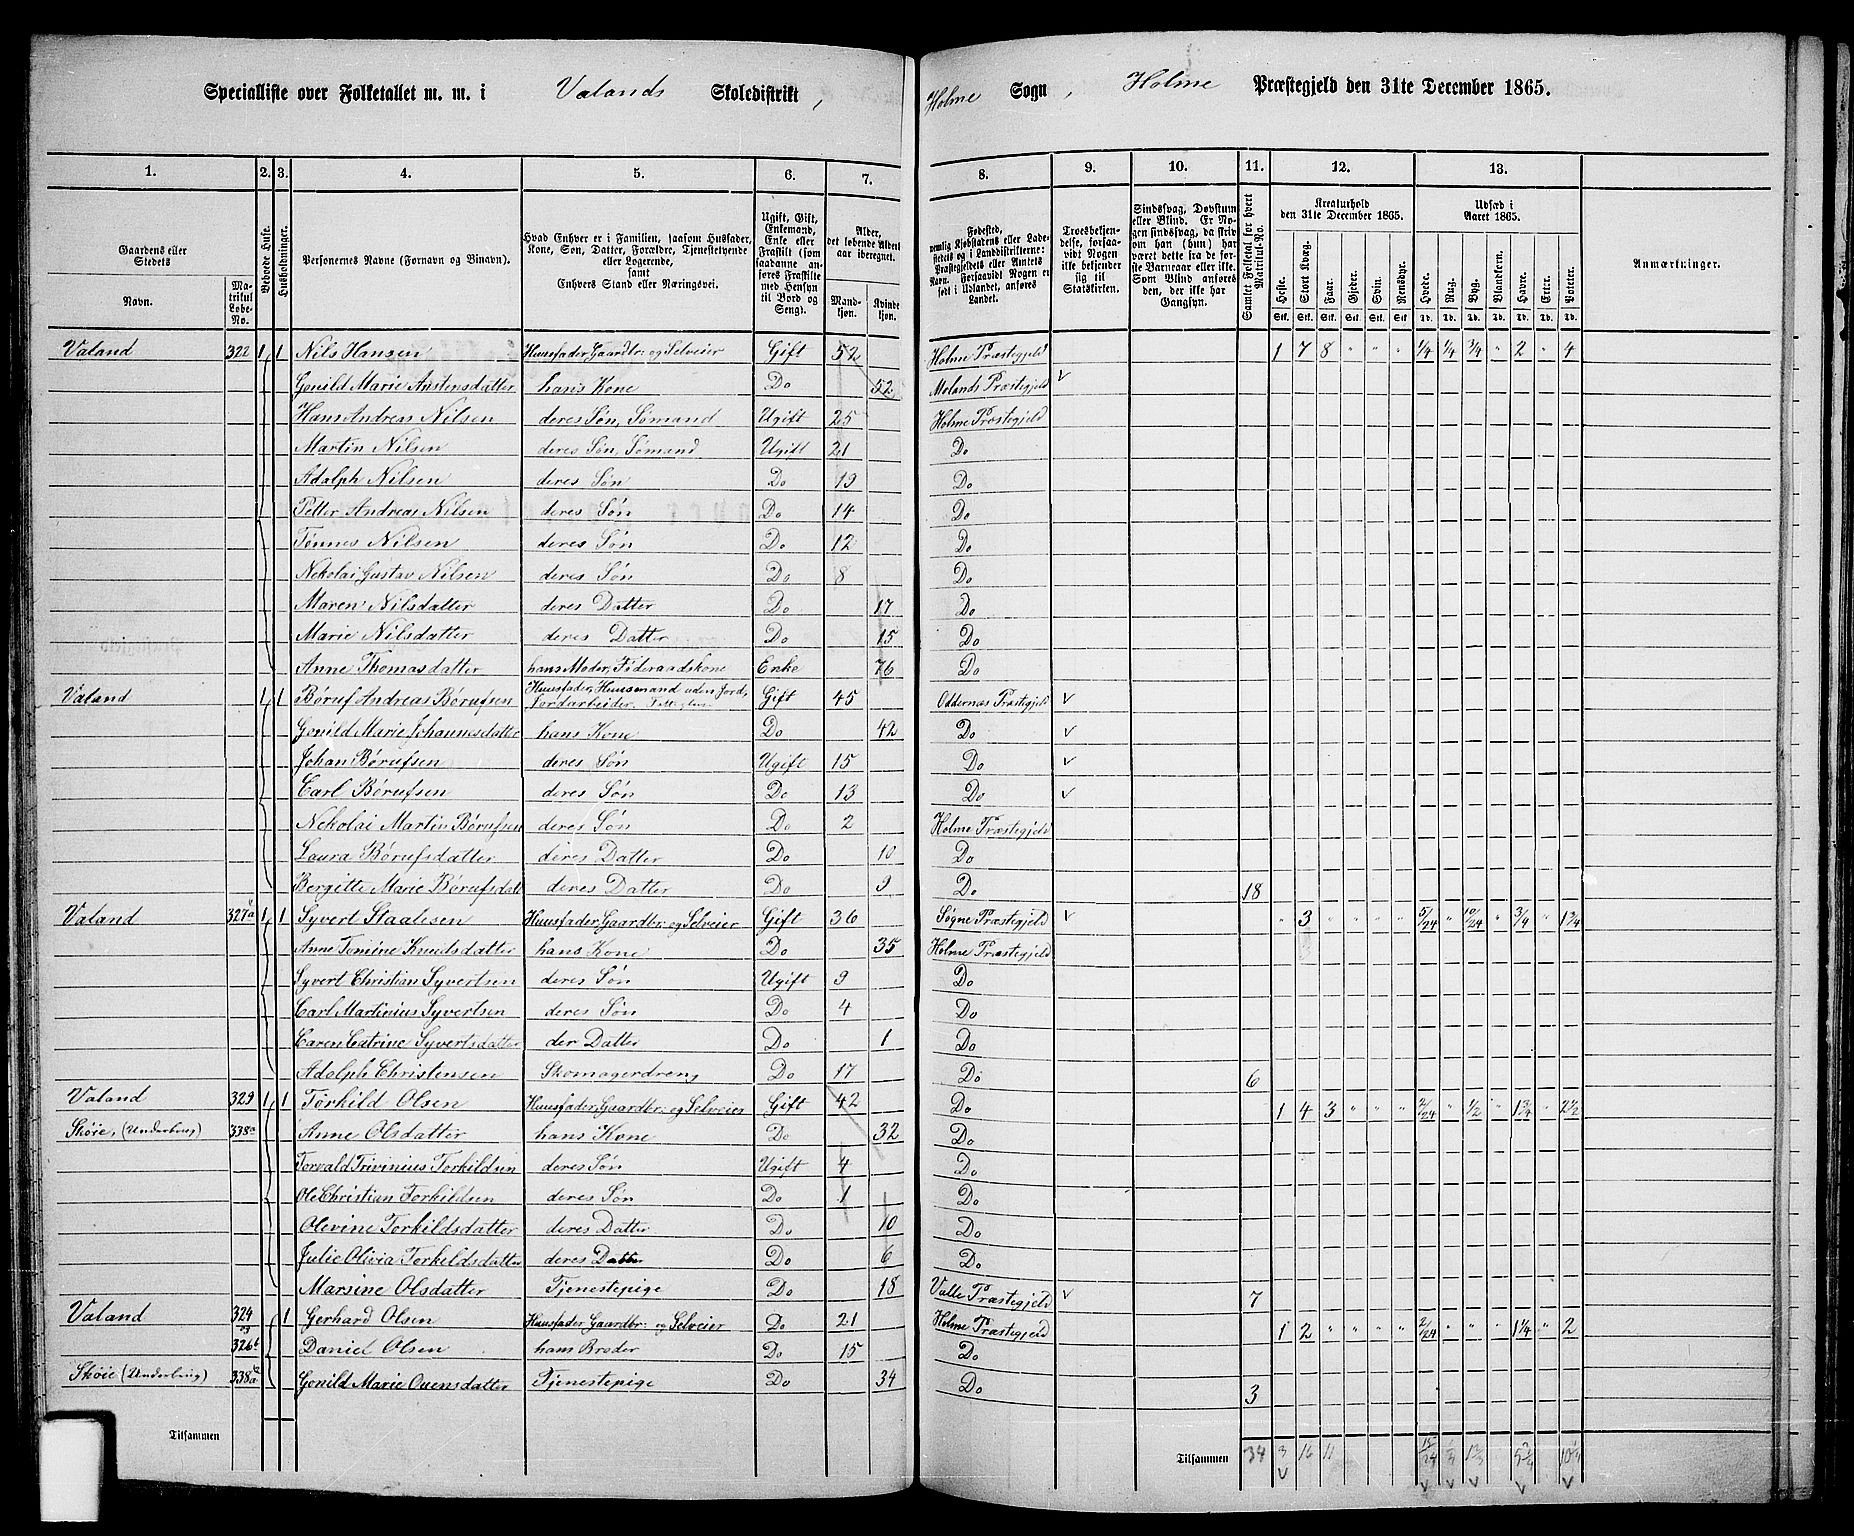 Specialliste over Folketallet m. m. i Valands Skoledistrikt, Holme Sogn, Holme Præstegjeld den 31te December 1865.
1. 2. 3. 4. 5. 6. 7. 8. 9. 10. 11. 12. 13.
Gaardens eller Stedets
Navn. Matrikul Løbe-No.
Beboede Huse.
Husholdninger.
Personernes Navne (Fornavn og Binavn).
Hvad Enhver er i Familien, saasom Husfader, Kone, Søn, Datter, Forældre, Tjenestetyende eller Logerende, samt Enhvers Stand eller Næringsvei.
Ugift, Gift, Enkemand, Enke eller Fraskilt (som saadanne anføres Fraskilte med Hensyn til Bord og Seng).
Alder, det løbende Aldersaar iberegnet.
Mandkjøn. Kvindekjøn.
Fødested, nemlig Kjøbstadens eller Ladestedets og i Landdistrikterne Præstegjeldets eller Amtets Navn. Forsaavidt Nogen er født i Udlandet, anføres Landet.
Troesbekjendelse, forsaavidt Nogen ikke bekjender sig til Statskirken.
Sindssvag, Døvstum eller Blind. Er Nogen sindssvag, da skriv om han (hun) har været dette fra de første Barneaar eller ikke. Som Blind anføres den, der ikke har Gangsyn.
Samlet Folketal for hvert Matrikul-No.
Kreaturhold den 31te December 1865.
Heste. Stort Kvæg. Faar. Gjeder. Svin. Rensdyr.
Udsæd i Aaret 1865.
Hvede. Rug. Byg. Blankorn. Havre. Erter. Poteter.
Stk. Stk. Stk. Stk. Stk. Stk. Td. Td. Td. Td. Td. Td. Td.
Anmærkninger.
Valand 322 1 1 Nils Hansen Huusfader, Gaardbr: og Selveier Gift 52 Holme Præstegjeld 1 7 8 " " " 1/4 1/4 3/4 " 2 " 4
Gonild Marie Austensdatter hans Kone Do 52 Molands Præstegjeld v
Hans Andreas Nilsen deres Søn, Sømand Ugift 25 Holme Præstegjeld
Martin Nilsen deres Søn, Sømand Ugift 21 Do
Adolph Nilsen deres Søn Do 19 Do
Petter Andreas Nilsen deres Søn Do 14 Do
Tønnes Nilsen deres Søn Do 12 Do
Nekolai Gustav Nilsen deres Søn Do 8 Do
Maren Nilsdatter deres Datter Do 17 Do
Marie Nilsdatter deres Datter Do 15 Do
Anne Thomasdatter hans Moder, Føderaadskone Enke 76 Do
Valand 1 1 Børuf Andreas Børufsen Huusfader, Huusmand uden Jord, Jordarbeider Gift 45 Oddernæs Præstegjeld v
Gonild Marie Johannesdatter hans Kone Do 42 Do v
Johan Børufsen deres Søn Ugift 15 Do v
Carl Børufsen deres Søn Do 13 Do v
Nekolai Martin Børufsen deres Søn Do 2 Holme Præstegjeld
Laura Børufsdatter deres Datter Do 10 Do
Bergitte Marie Børufsdatt deres Datter Do 9 Do 18
Valand 327a 1 1 Syvert Staalesen Huusfader, Gaardbr: og Selveier Gift 36 Søgne Præstegjeld v " 3 " " " " 5/24 " 10/24 " 3/4 " 1 3/4
Anne Tomine Knudsdatter hans Kone Do 35 Holme Præstegjeld
Syvert Christian Syvertsen deres Søn Ugift 9 Do
Carl Martinius Syvertsen deres Søn Do 4 Do
Caren Catrine Syvertsdatter der Datter Do 1 Do
Adolph Christensen Skomagerdreng Do 17 Do 6
Valand 329 1 1 Torkild Olsen Huusfader, Gaardbr: og Selveier Gift 42 Do 1 4 3 " " " 2/24 " 1/2 " 1 3/4 " 2 1/2
Skøie, (Underbrug) 338a Anne Olsdatter hans Kone Do 32 Do
Torvald Trivinius Torkildsen deres Søn Ugift 4 Do
Ole Christian Torkildsen deres Søn Do 1 Do
Olivine Torkildsdatter deres Datter Do 10 Do
Julie Olivia Torkildsdatter deres Datter Do 6 Do
Marsine Olsdatter Tjenestepige Do 18 Valle Præstegjeld v 7
Valand 324 1 Gerhard Olsen Huusfader, Gaardbr: og Selveier Do 21 Holme Præstegjeld 1 2 " " " " 2/24 " " " 1 1/4 " 2
og 326b Daniel Olsen hans Broder Do 15 Do
Skøie (Underbrug) 338a Gonild Marie Ouensdatter Tjenestepige Do 34 Do 3
Tilsammen Tilsammen 34 3 16 11